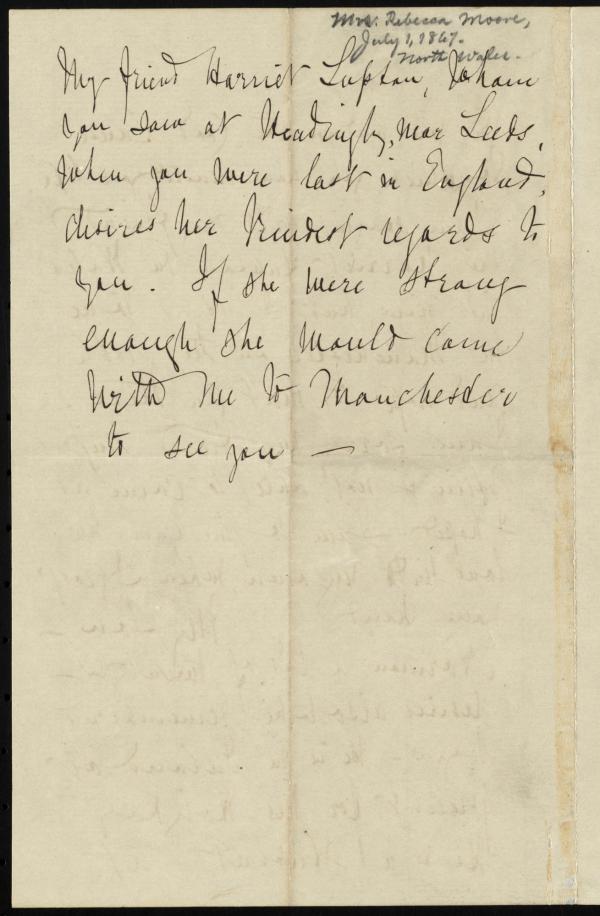 Mrs. Rebecca Moore,
July 1, 1867.
North Wales.
My friend Harriet Lupton, whom
you saw at Headingly, near Leeds,
when you were last in England,
desires her kindest regards to
you. If she were strong
enough she would come
with me to Manchester
to see you —